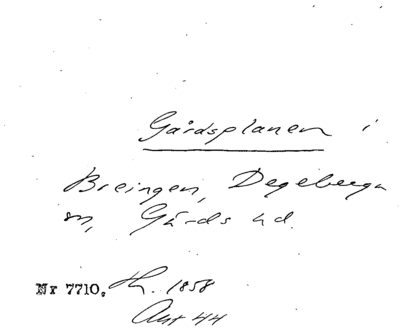 Gårdsplanen i
Breingen, Degeberga
sn, Gärds hd.
Nr 7710. th. 1858
Aug 44